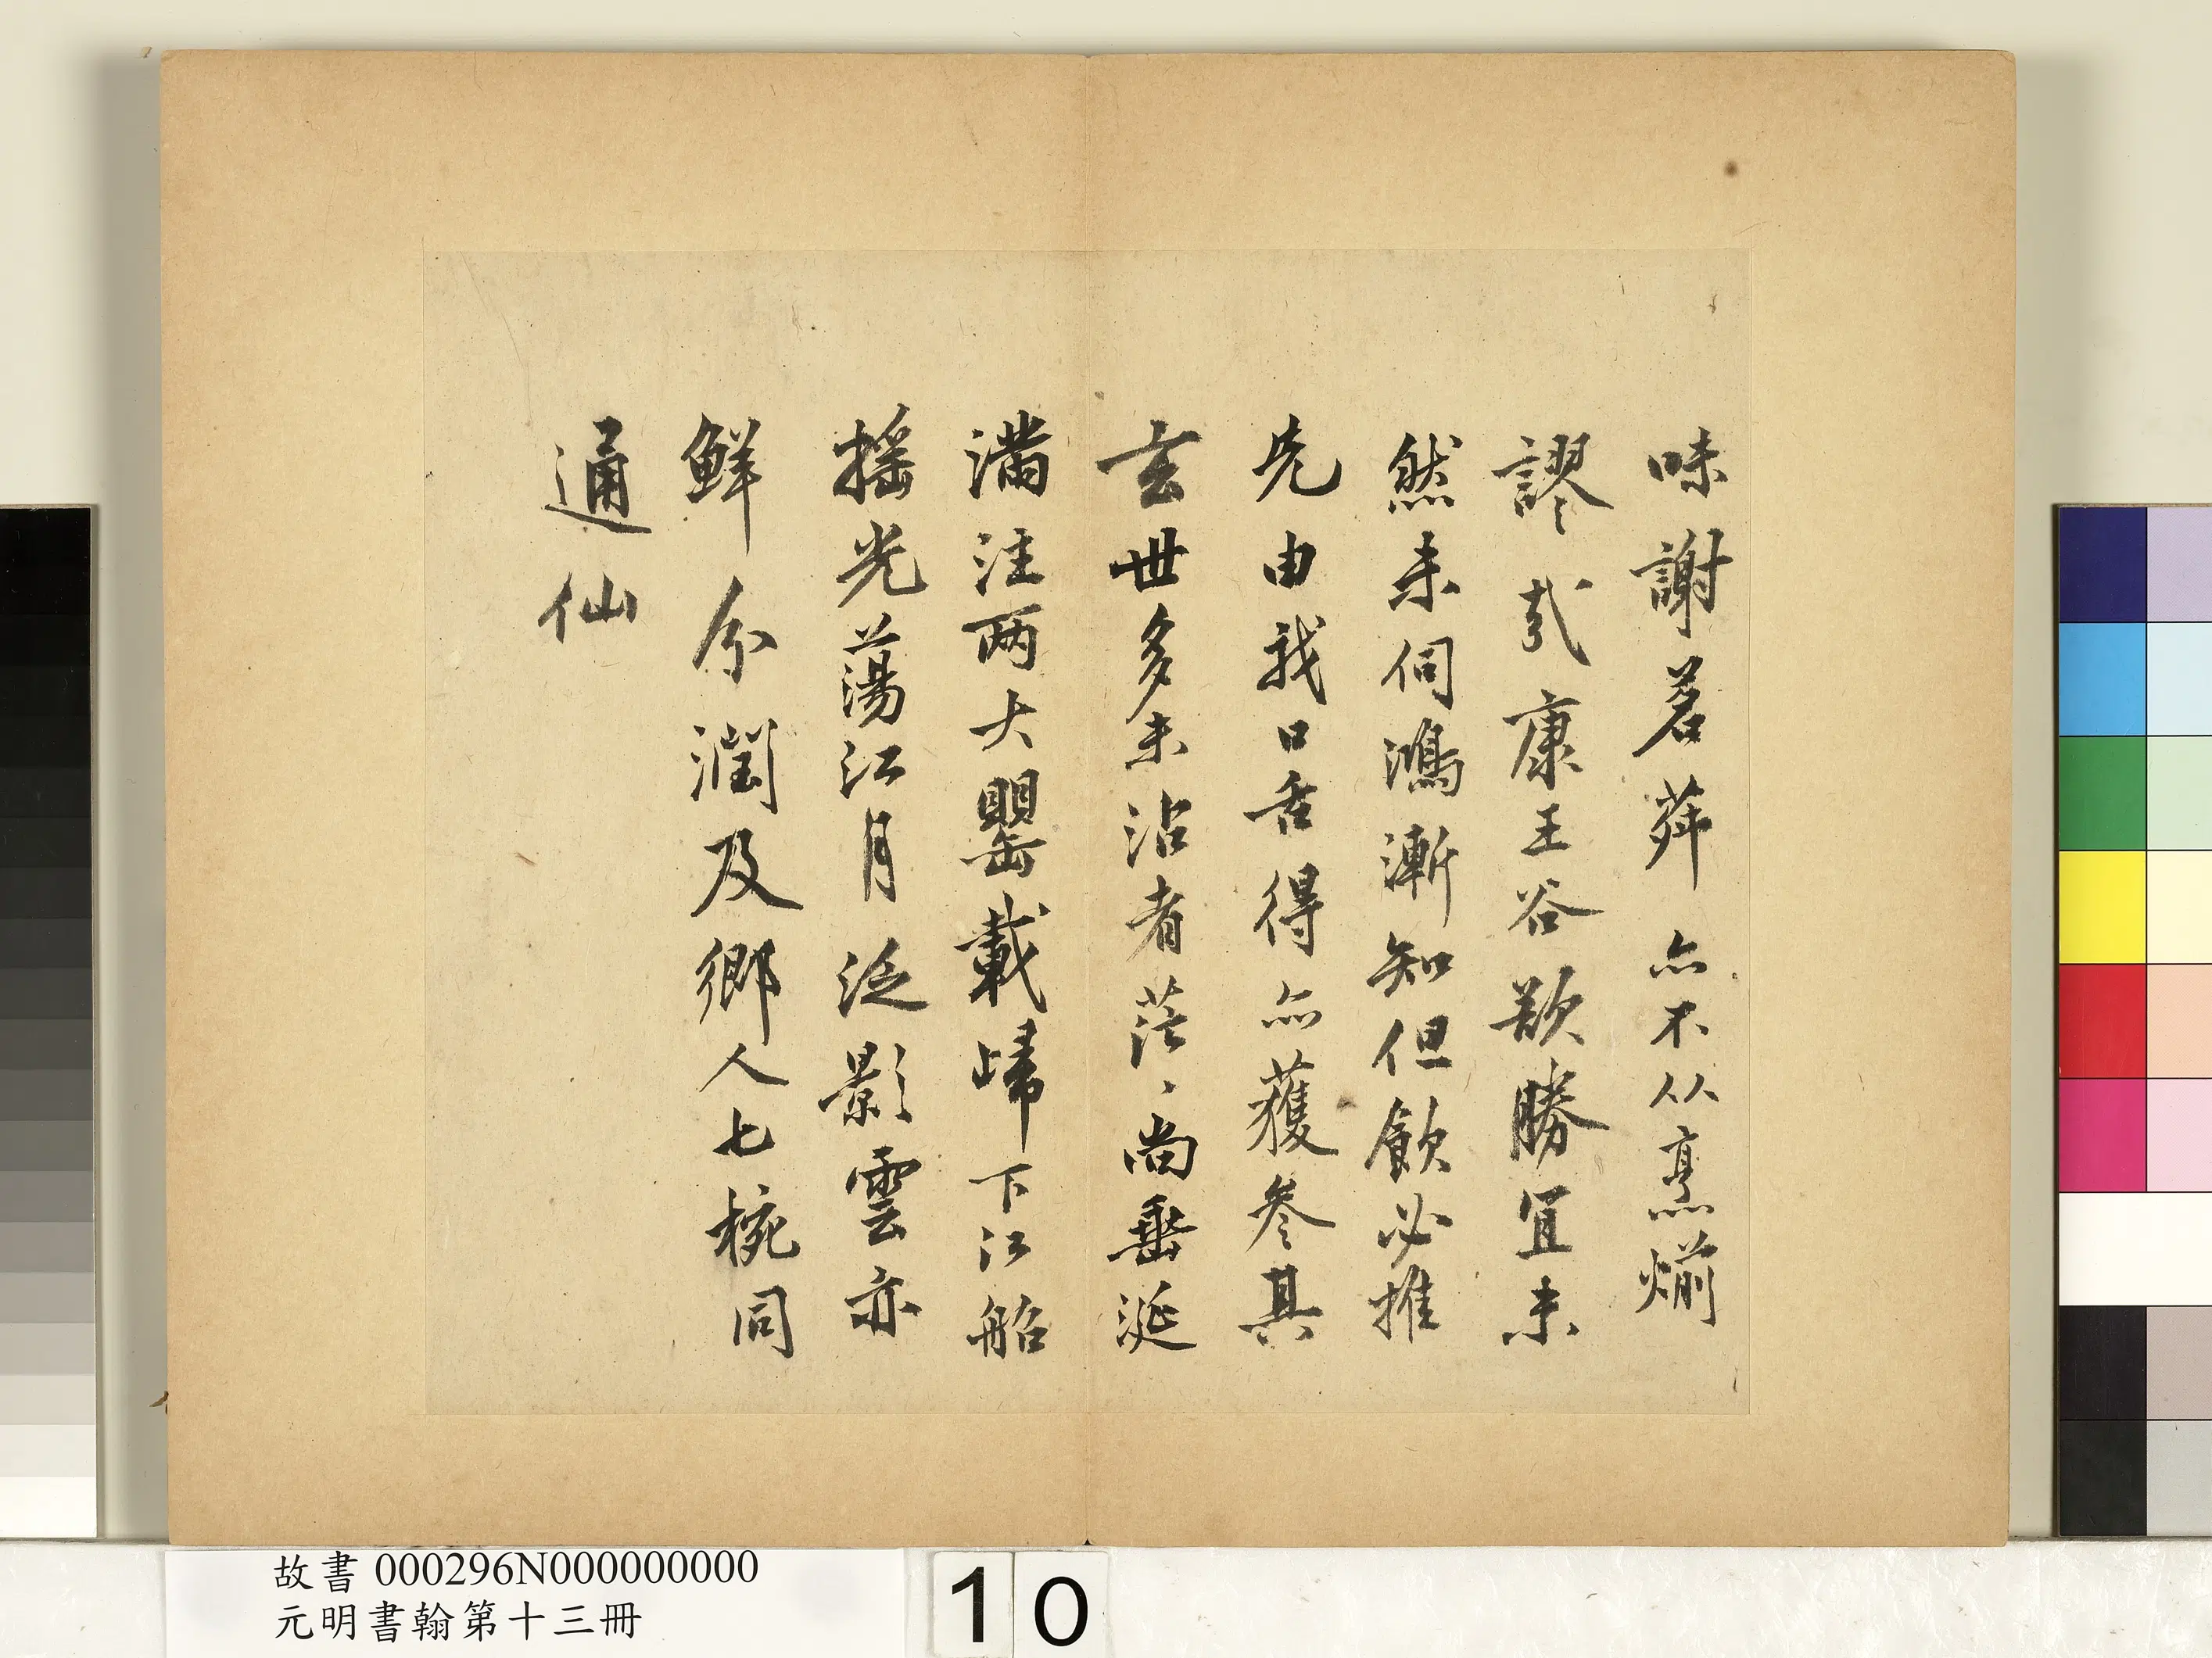 味謝茗荈亦不从烹煎
謬哉康王谷勝宜未
然未伺鴻漸知但飲必推
先由我口舌得亦獲參其
玄世多未沾者茫、尚垂涎
滿注两大罌載歸下江船
搖光蕩江月泛影雲亦
鮮分潤及鄉人七椀同
通仙
故書 000296N000000000
元明書翰第十三冊
10